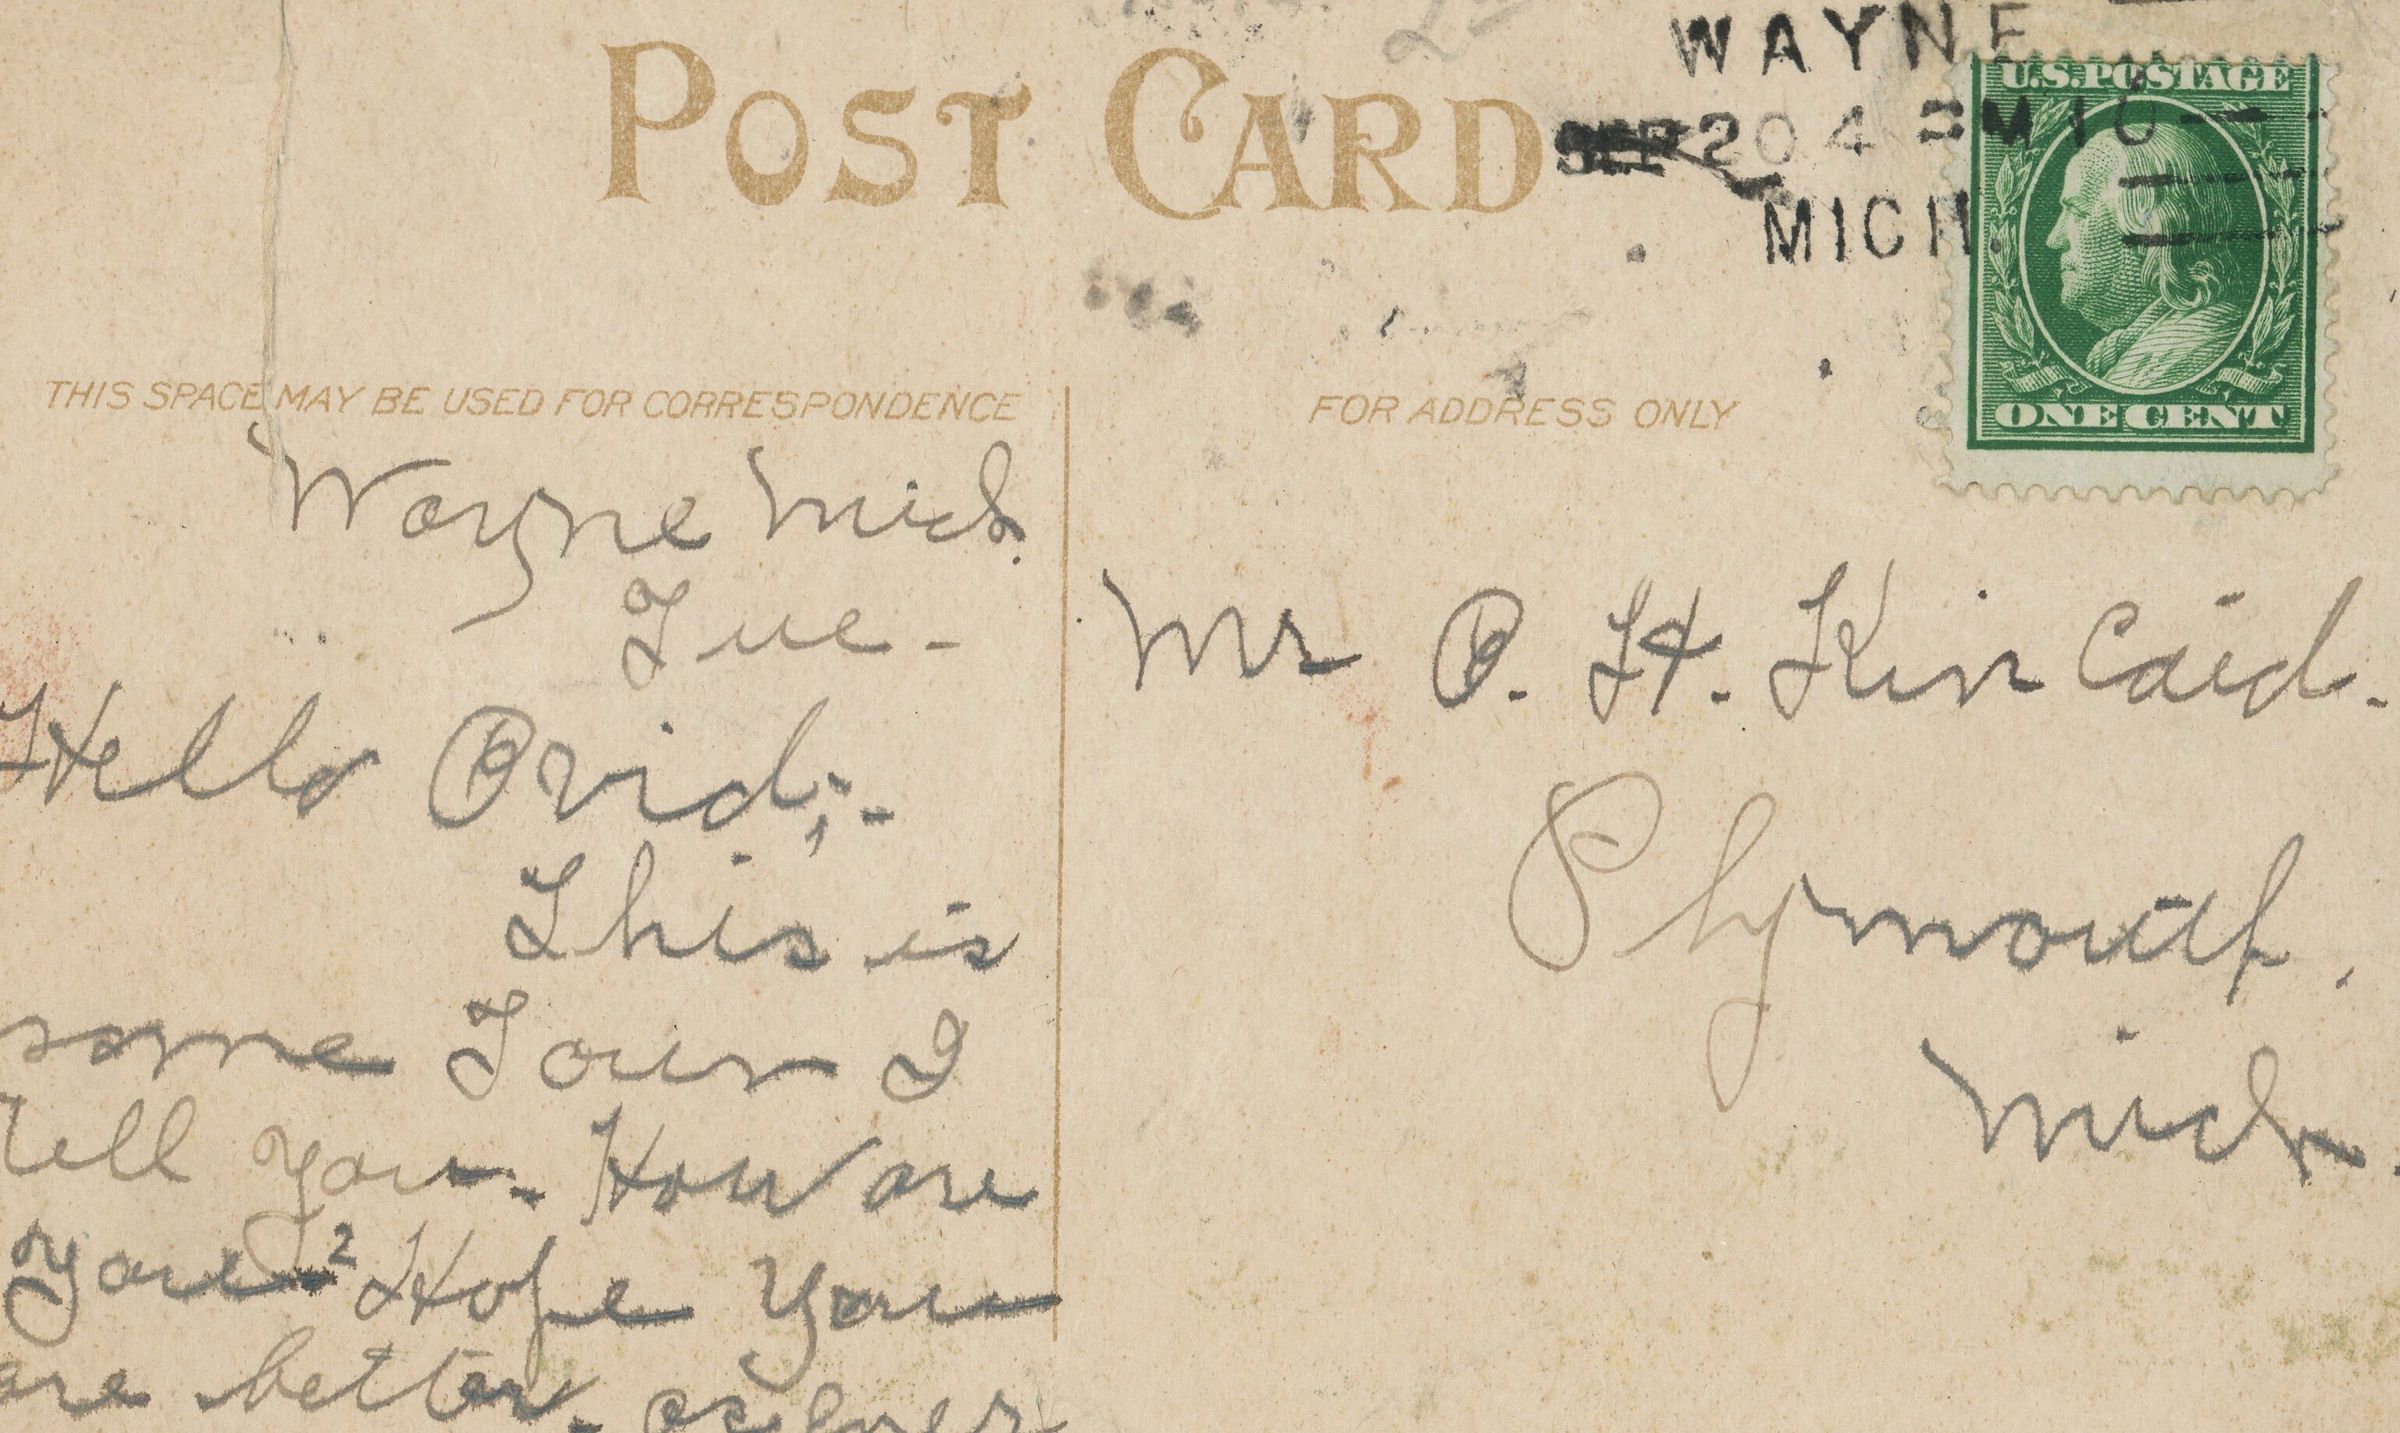 POST CARD
WAYNE
SEP 20 4 M 10
MICH.
U.S. POSTAGE
ONE CENT
THIS SPACE MAY BE USED FOR CORRESPONDENCE
FOR ADDRESS ONLY
Wayne Mich.
Tue-
Hello Ovid;-
This is
some Town I
tell you. How are
you? Hope you
are better.
Mr O. H. Kincaid.
Plymouth,
Mich.